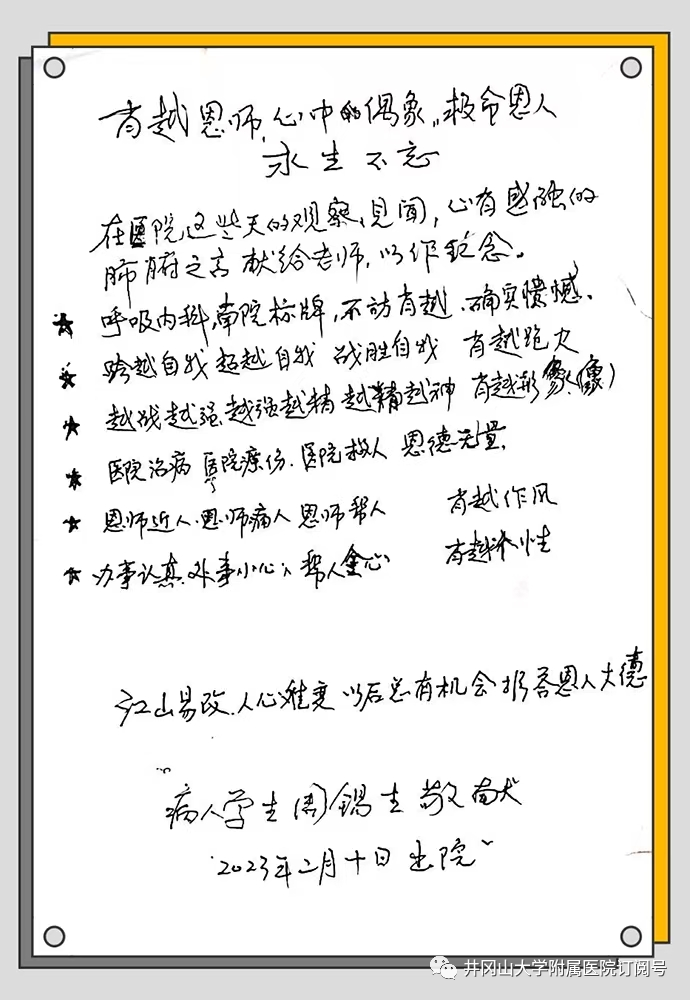 肖越恩师,心中的偶象,,救命恩人
永生不忘
在医院这些天的观察、见闻,心有感触的
肺腑之言献给老师,以作纪念。
★ 呼吸内科,南院标牌,不访肖越、确实愤憾、
★ 跨越自我 超越自我 战胜自我 肖越
★ 越战越强、越强越精 越精越神 肖越形象(像)
★ 医院治病 医院疗伤、医院救人 恩德无量,
★ 恩师近人、恩师病人 恩师帮人 肖越作风
★ 办事认真、处事小心、帮人全心 肖越个性
江山易改、人心难变 以后总有机会报答恩人大德
病人学生周锡生敬献
2023年二月十日出院
井冈山大学附属医院订阅号